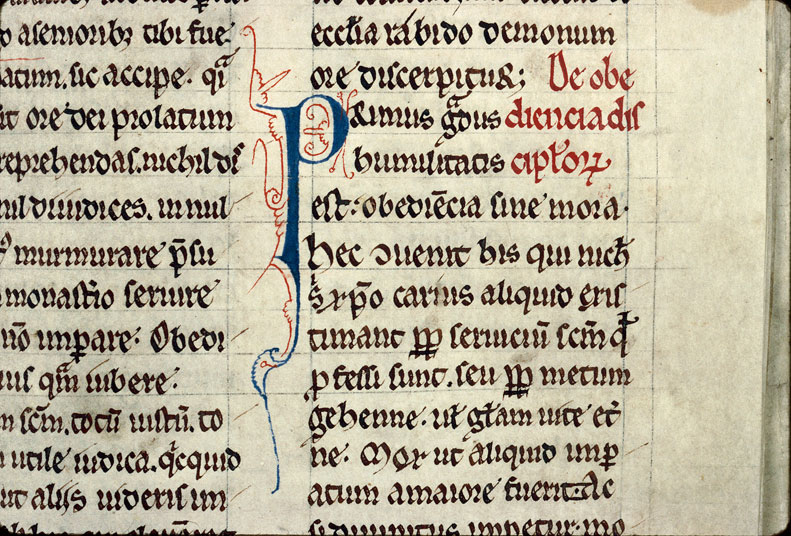 o asenioribꝫ tibi fue
datum. sic accipe. q̃i
sit ore dei prolatum
reprehendas. nichil dis
nul diiudices. in nul
murmurare p̃su
monast̃io seruire
nõ imꝑare. Obedi
q̃m iubere.
m scm̃. totũ iustũ. to
utile iudica. q̃cquid
ut alijs uideris im
eccl̃ia rabido demonum
ore discerpitur; De obe
PRimus g̃dus diencia dis
humilitatis cipl̃oꝝ
est. obediẽcia sine mora.
hec ↄuenit his qui nich̃
s̃ xp̃o carius aliquid exis
timant. ꝓpꝑ seruiciũ scm̃ q̃
ꝓfessi sunt. seu ꝓpꝑ metum
gehenne. ul̃ gl̃am uite et̃
ne. Mox ut aliquid imꝑ
atum amaiore fuerit. Ac
si diuinitus impetur. mo